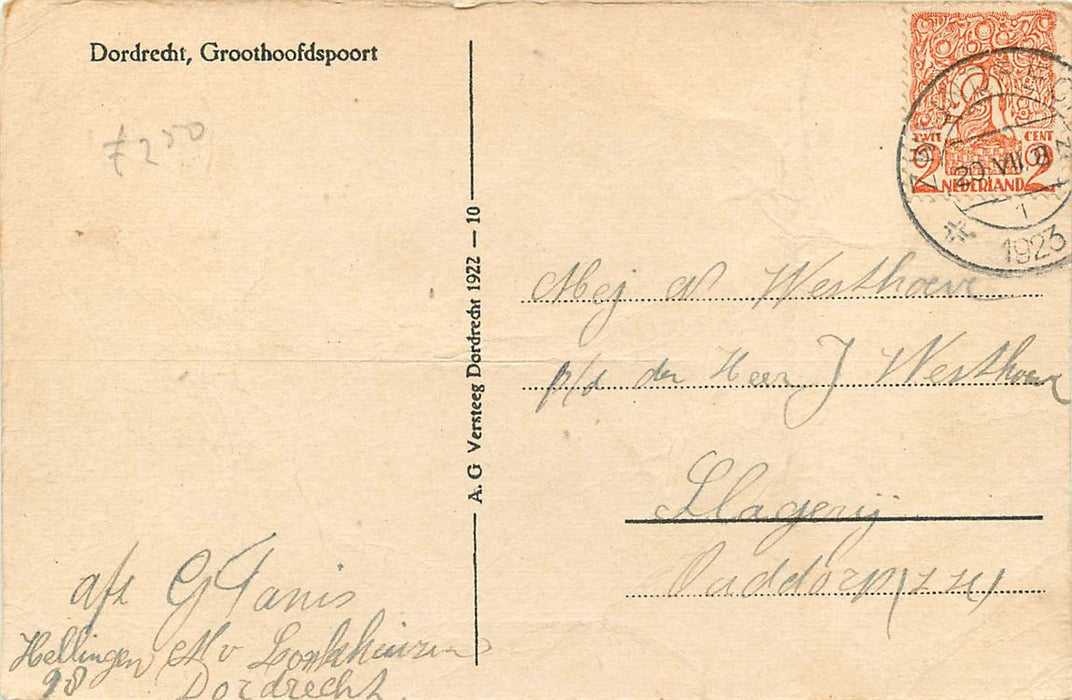 Dordrecht, Groothoofdspoort
f 250
A. G Versteeg Dordrecht 1922 — 10
TWEE CENT
2 NEDERLAND 2
20.VII
1
1923
Mej Westhoeve
p/a den Heer J Westhoeve
Slagerij
Ouddorp (ZH)
afz G Tanis
Hellingen
98 Dordrecht